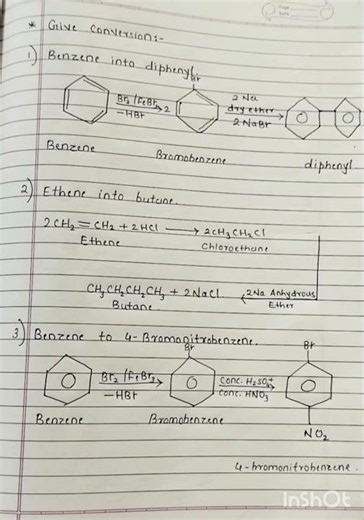 * Give conversions:-
1) Benzene into diphenyl.
Br
Br2/FeBr3 2 2Na
-HBr dry ether
2NaBr
Benzene Bromobenzene diphenyl.
2) Ethene into butane.
2CH2=CH2 + 2HCl → 2CH3CH2Cl
Ethene Chloroethane
CH3CH2CH2CH3 + 2NaCl ← 2Na Anhydrous
Butane Ether
3) Benzene to 4-Bromonitrobenzene.
Br Br
Br2/FeBr3 Conc. H2SO4
-HBr Conc. HNO3
Benzene Bromobenzene
NO2
4-bromonitrobenzene.
InShOt